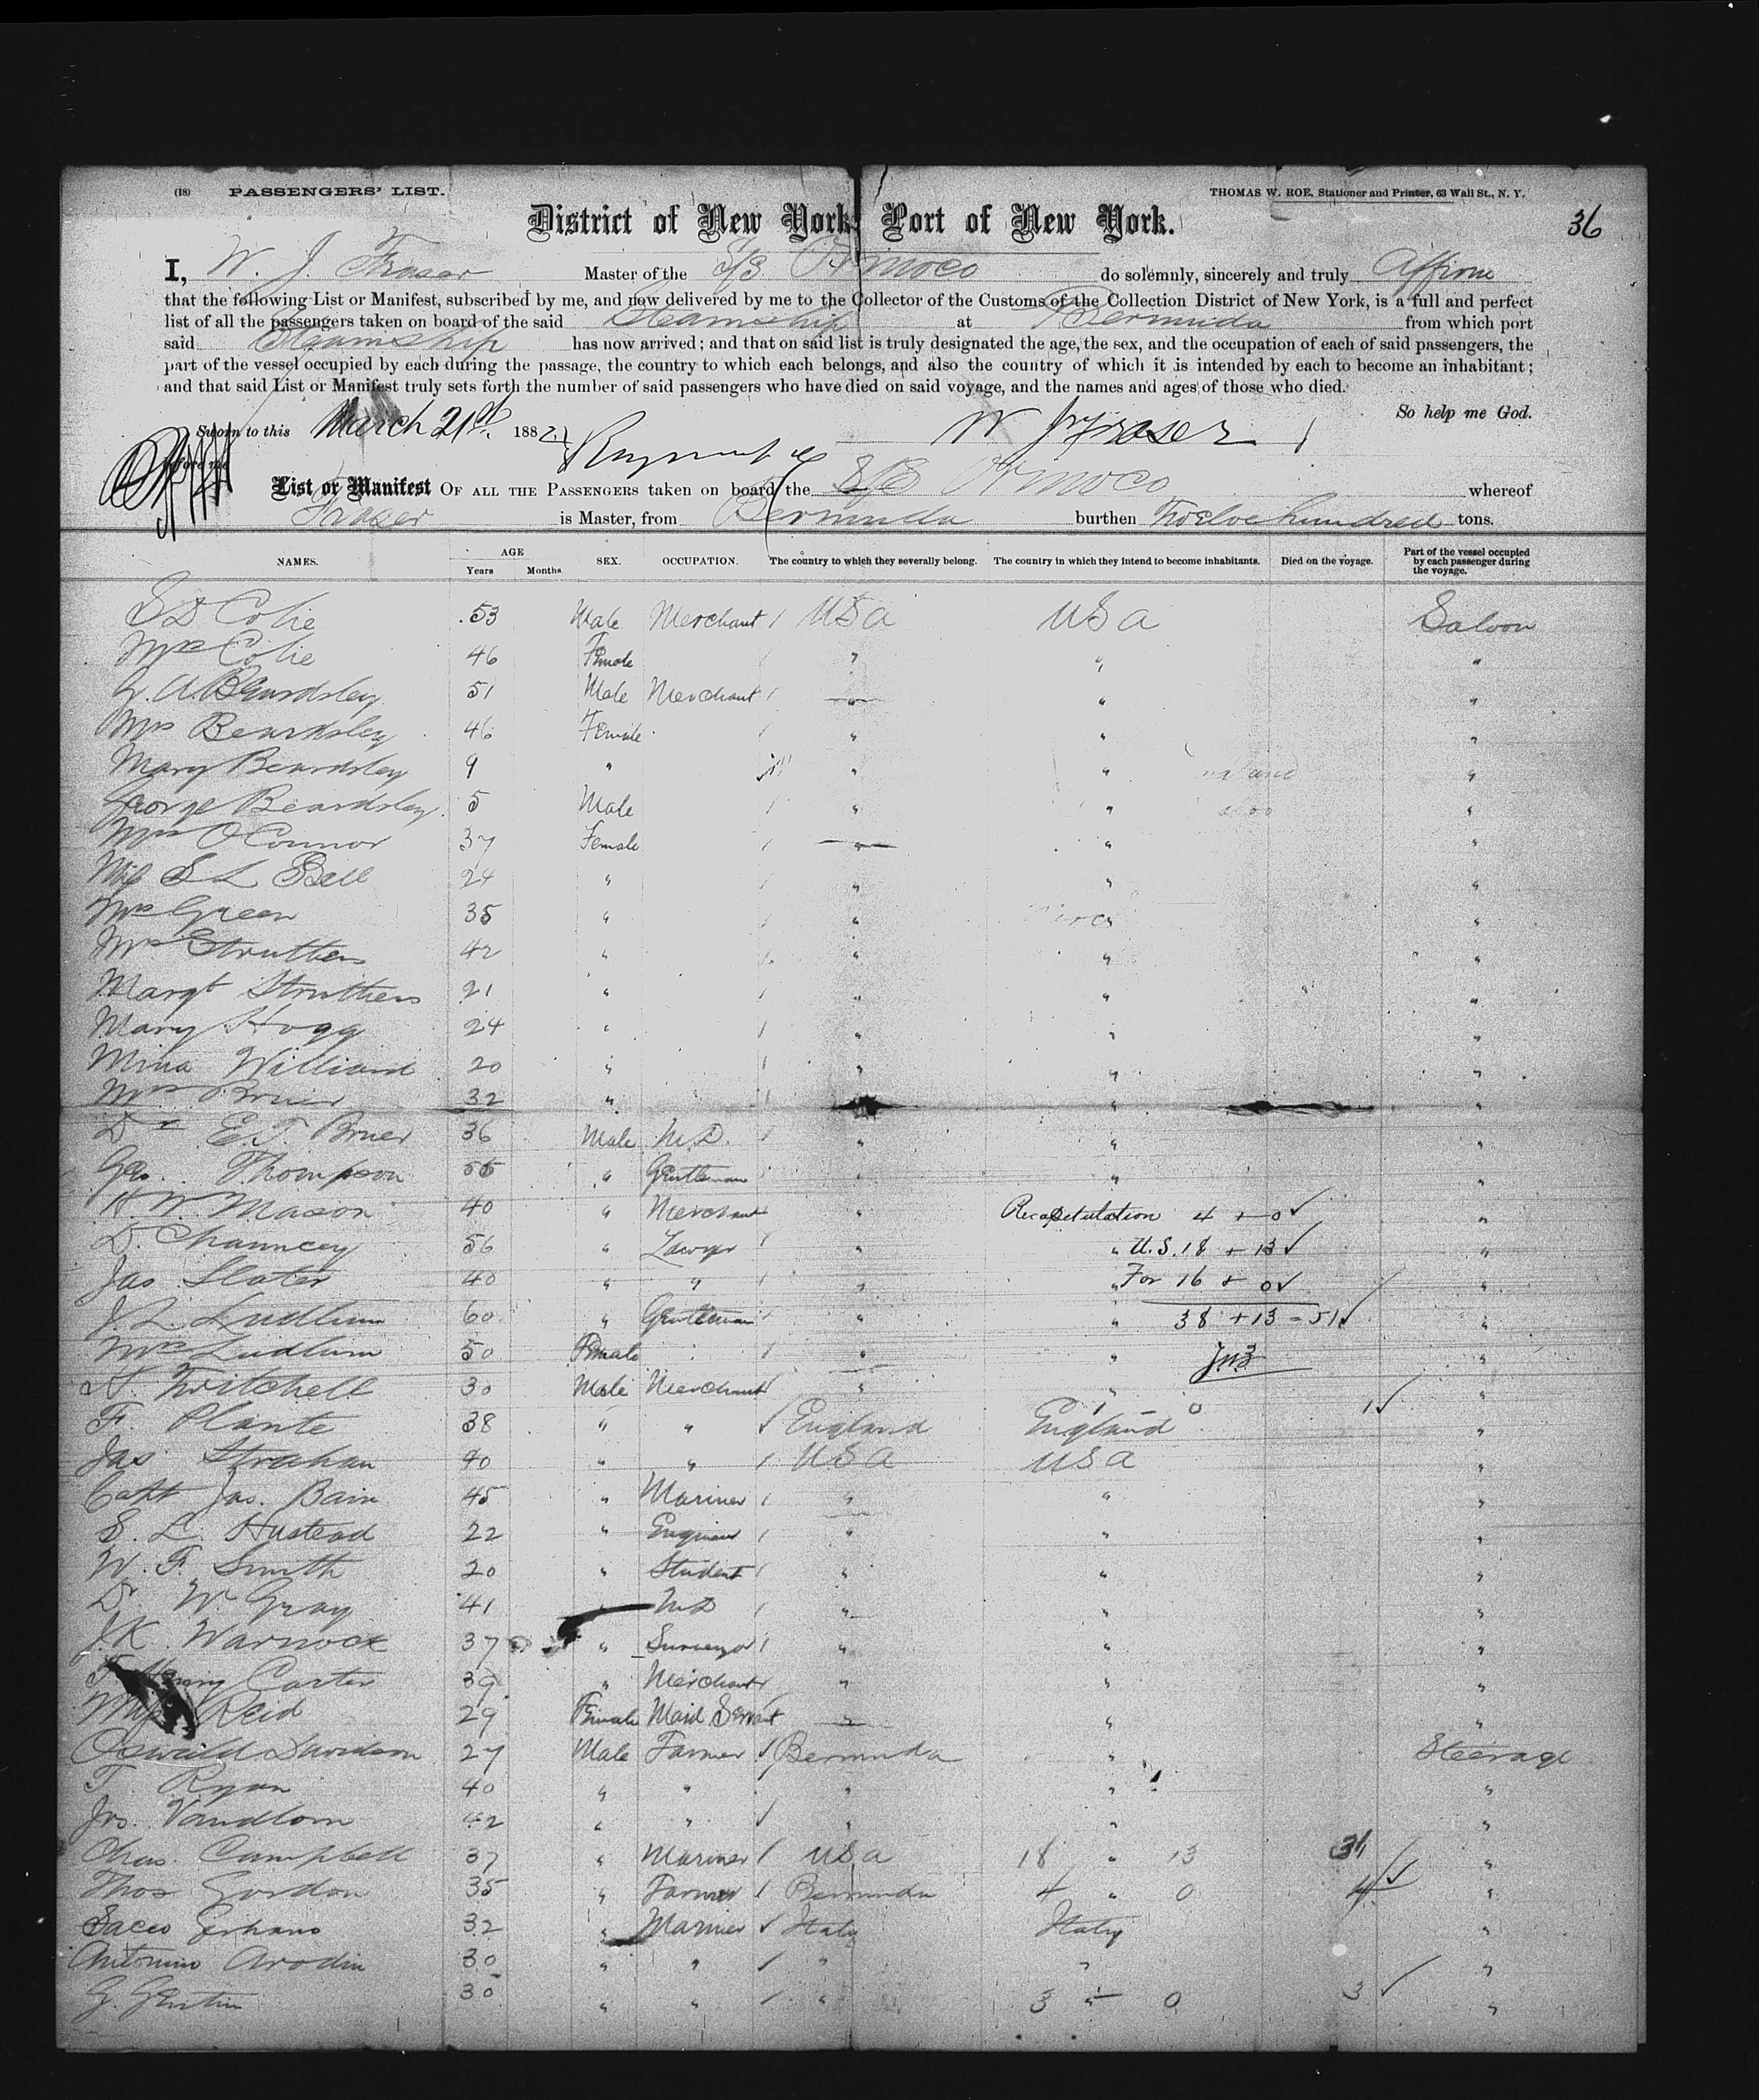 (18) PASSENGERS' LIST. THOMAS W. ROE, Stationer and Printer, 63 Wall St., N. Y.
District of New York, Port of New York. 36
I, W. J. Fraser Master of the S/S Orinoco do solemnly, sincerely and truly affirm
that the following List or Manifest, subscribed by me, and now delivered by me to the Collector of the Customs of the Collection District of New York, is a full and perfect
list of all the passengers taken on board of the said Steamship at Bermuda from which port
said Steamship has now arrived; and that on said list is truly designated the age, the sex, and the occupation of each of said passengers, the
part of the vessel occupied by each during the passage, the country to which each belongs, and also the country of which it is intended by each to become an inhabitant;
and that said List or Manifest truly sets forth the number of said passengers who have died on said voyage, and the names and ages of those who died.
So help me God.
Sworn to this March 21st 1882 W J Fraser
before me
List or Manifest OF ALL THE PASSENGERS taken on board the S/S Orinoco whereof
Fraser is Master, from Bermuda burthen Twelve hundred tons.
NAMES. AGE Years Months SEX. OCCUPATION. The country to which they severally belong. The country in which they intend to become inhabitants. Died on the voyage. Part of the vessel occupied by each passenger during the voyage.
S D Colie 53 Male Merchant / USA USA Saloon
Mrs Colie 46 Female / " " "
A. Beardsley 51 Male Merchant / " " "
Mrs Beardsley 46 Female / " " "
Mary Beardsley 9 " " " "
George Beardsley 5 Male / " " "
Mrs O'Connor 37 Female / " " "
Miss S L Bell 24 " / " " "
Mrs Green 35 " / " " "
Mrs Struthers 42 " / " " "
Margt Struthers 21 " / " " "
Mary Hogg 24 " / " " "
Mina William 20 " / " " "
Mrs Bruer 32 " / " " "
Dr E. T. Bruer 36 Male M.D. / " " "
Geo. Thompson 55 " Gentleman / " " "
H. W. Mason 40 " Merchant " Recapitulation 4 + 0 ✓ "
D. Chauncey 56 " Lawyer / " " U.S. 18 + 13 ✓ "
Jas Slater 40 " " / " " For 16 + 0 ✓ "
J. L. Ludlum 60 " Gentleman / " " 38 + 13 = 51 ✓ "
Mrs Ludlum 50 Female / " " "
Twitchell 30 Male Merchant / " " "
F. Plante 38 " " / England England 1 - 0 1 ✓ "
Jas Strahan 40 " " / USA USA "
Capt Jas. Bain 45 " Mariner / " " "
S. L. Hustead 22 " Engineer / " " "
W. F. Smith 20 " Student / " " "
Dr W. Gray 41 " M.D / " " "
J. K. Warnock 37 " Surveyor / " " "
T. Henry Carter 39 " Merchant / " " "
Miss Reid 29 Female Maid Servant " " "
Oswald Davidson 27 Male Farmer / Bermuda " Steerage
T. Ryan 40 " " " " "
Jos. Vandlorn 42 " " / " " "
Chas. Campbell 37 " Mariner / USA 18 " 13 31 ✓ "
Thos Gordon 35 " Farmer / Bermuda 4 " 0 4 ✓ "
32 " Mariner / Italy Italy "
Antonino Arodin 30 " " / " " "
G. 30 " " / " 3 " 0 3 ✓ "